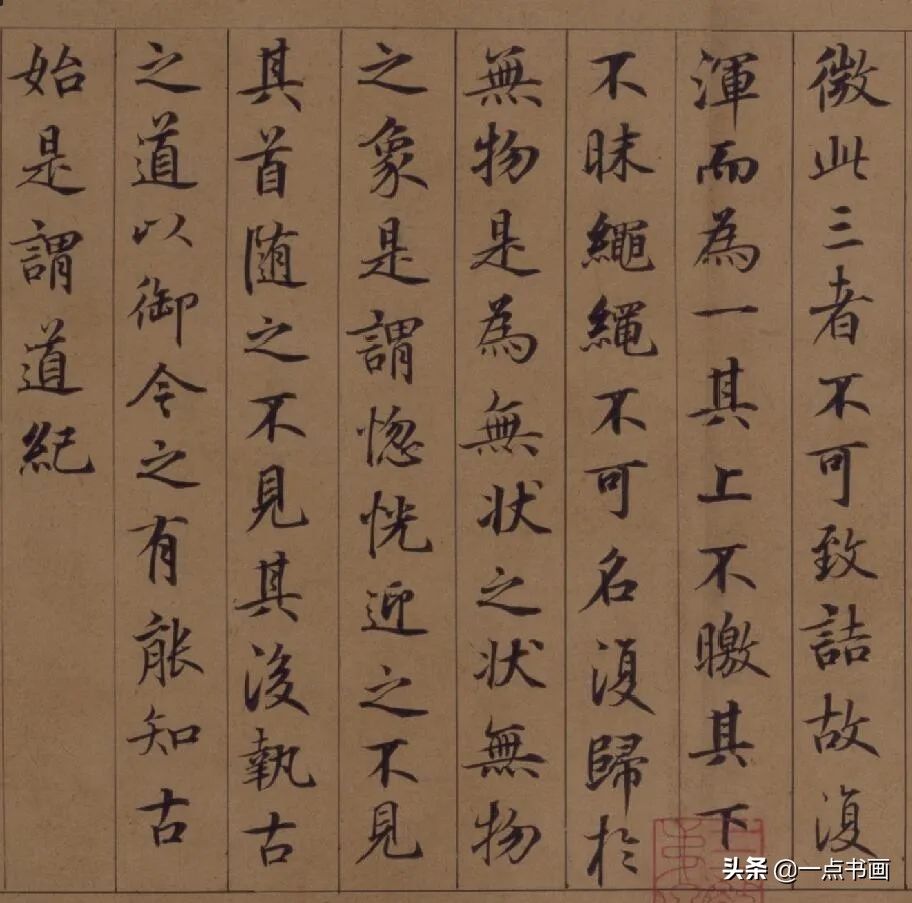 微此三者不可致詰故復
渾而為一其上不曒其下
不昧繩繩不可名復歸於
無物是為無状之状無物
之象是謂惚恍迎之不見
其首随之不見其後執古
之道以御今之有能知古
始是謂道紀
头条 @一点书画